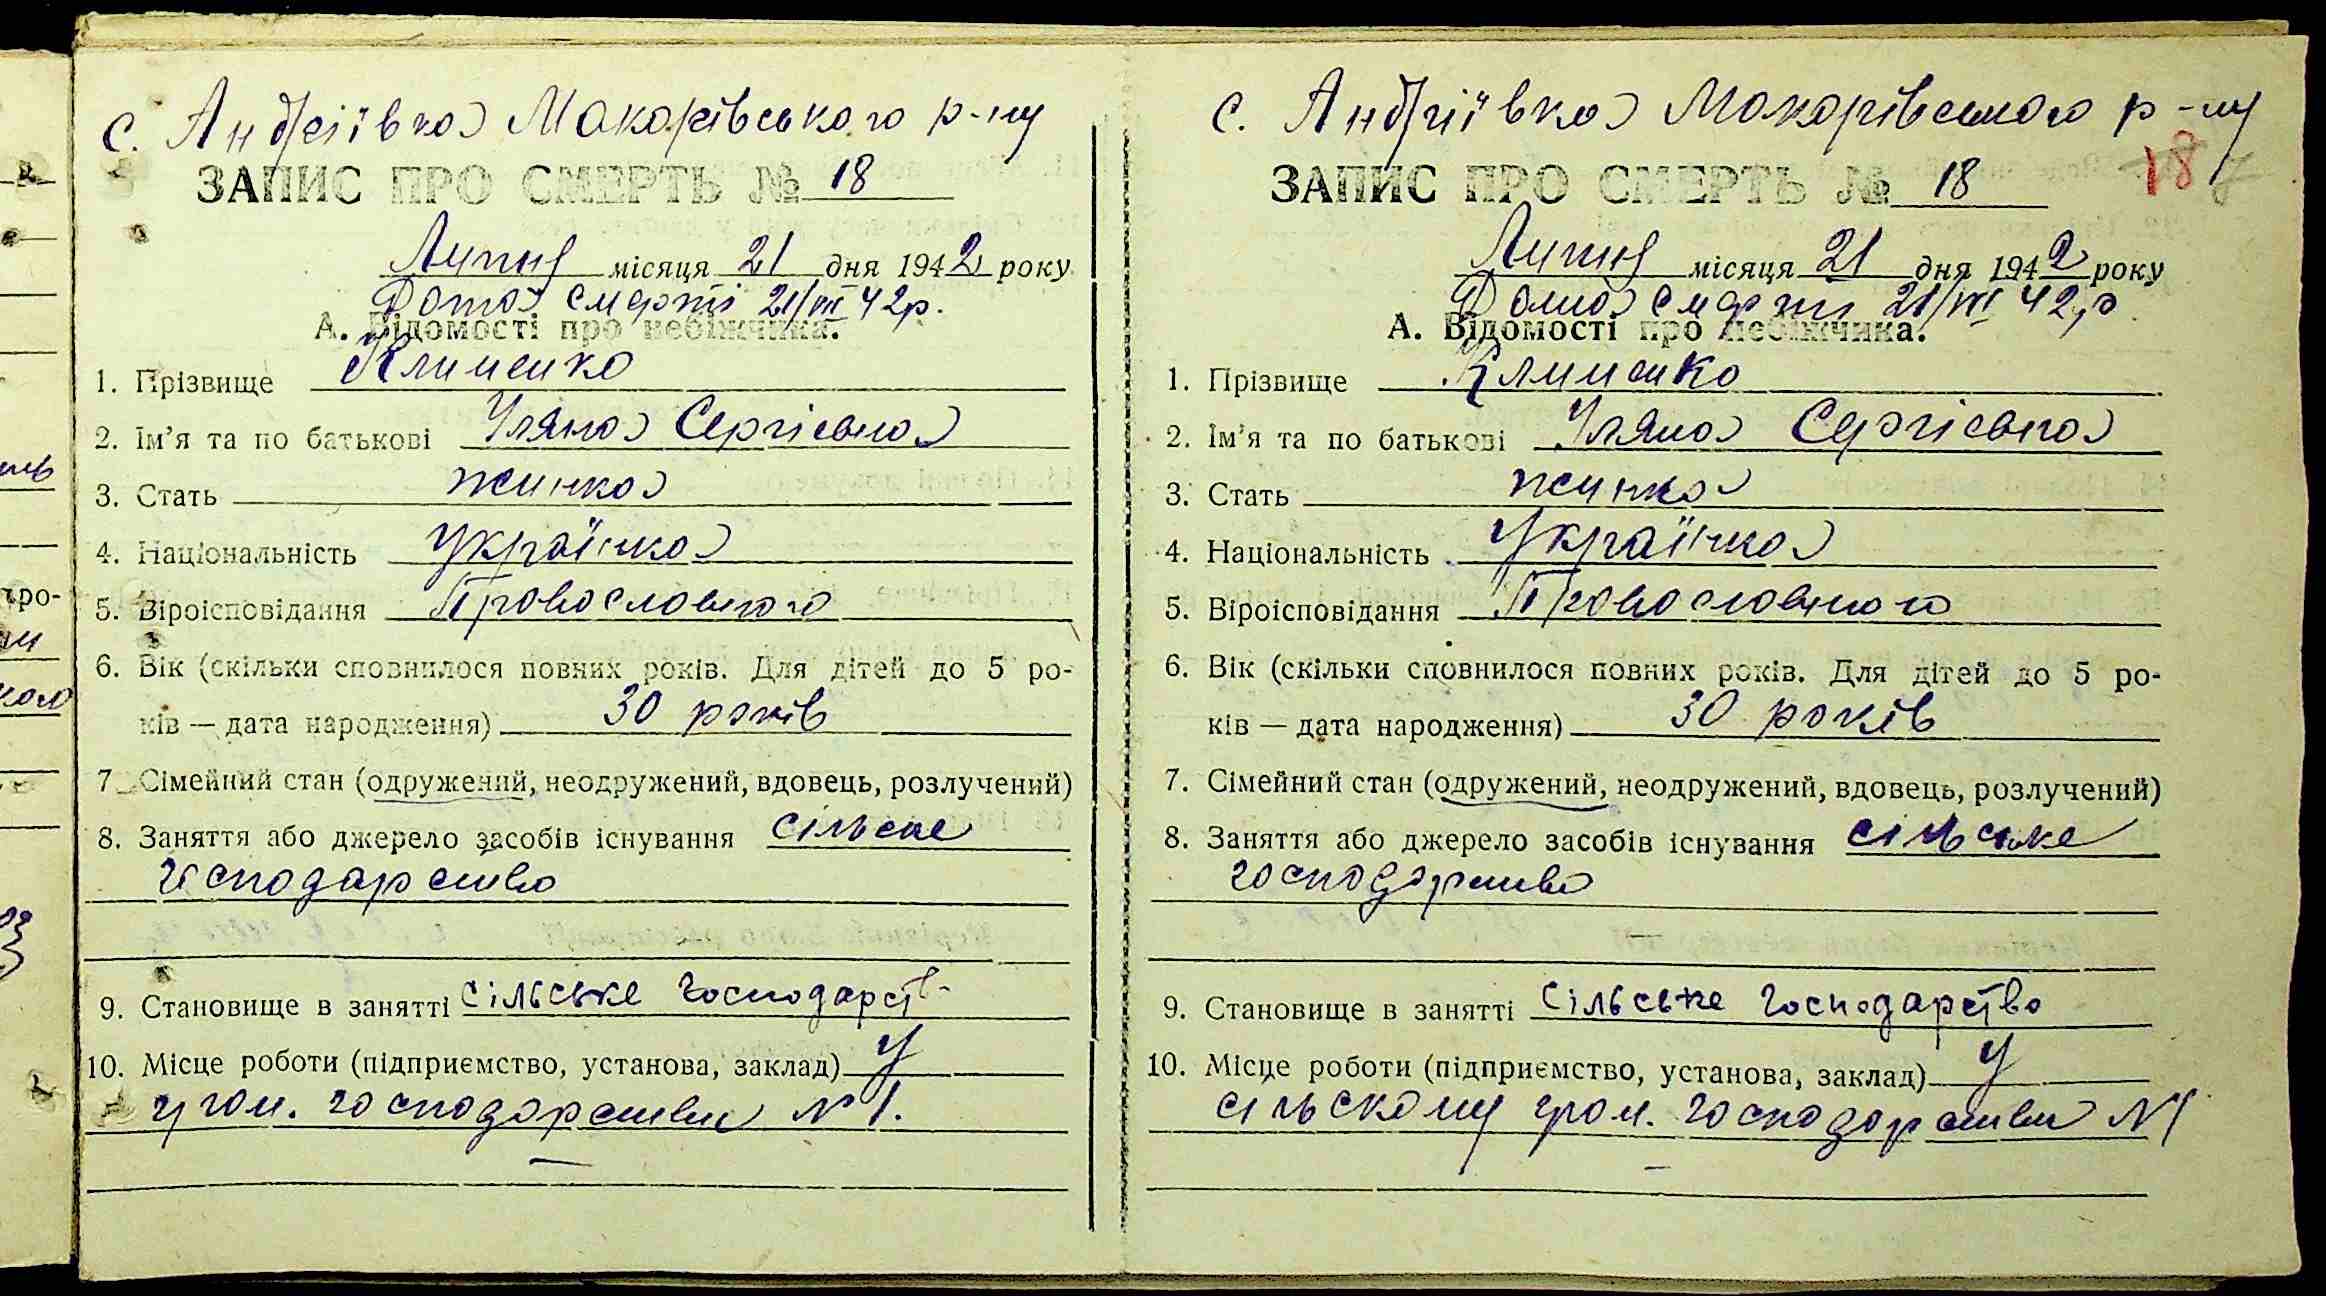 с. Андріївка Макарівського р-ну
ЗАПИС ПРО СМЕРТЬ № 18
Липня місяця 21 дня 1942 року
Дата смерті 21/VII 42р.
А. Відомості про небіжчика.
1. Прізвище Клименко
2. Ім'я та по батькові Уляна Сергієвна
3. Стать жинка
4. Національність Українка
5. Віроісповідання Православного
6. Вік (скільки сповнилося повних років. Для дітей до 5 ро-
ків — дата народження) 30 років
7. Сімейний стан (одружений, неодружений, вдовець, розлучений)
8. Заняття або джерело засобів існування сільске
господарство
9. Становище в занятті сільське господарств
10. Місце роботи (підприємство, установа, заклад) У
гром. господарстви № 1.
с. Андріївка Макарівського р-ну
ЗАПИС ПРО СМЕРТЬ № 18
18
Липня місяця 21 дня 1942 року
Дата смерти 21/VII 42р
А. Відомості про небіжчика.
1. Прізвище Клименко
2. Ім'я та по батькові Уляна Сергієвна
3. Стать жинка
4. Національність Українка
5. Віроісповідання Православного
6. Вік (скільки сповнилося повних років. Для дітей до 5 ро-
ків — дата народження) 30 років
7. Сімейний стан (одружений, неодружений, вдовець, розлучений)
8. Заняття або джерело засобів існування сільське
господарство
9. Становище в занятті сільське господарство
10. Місце роботи (підприємство, установа, заклад) У
сільскому гром. господарстви № 1